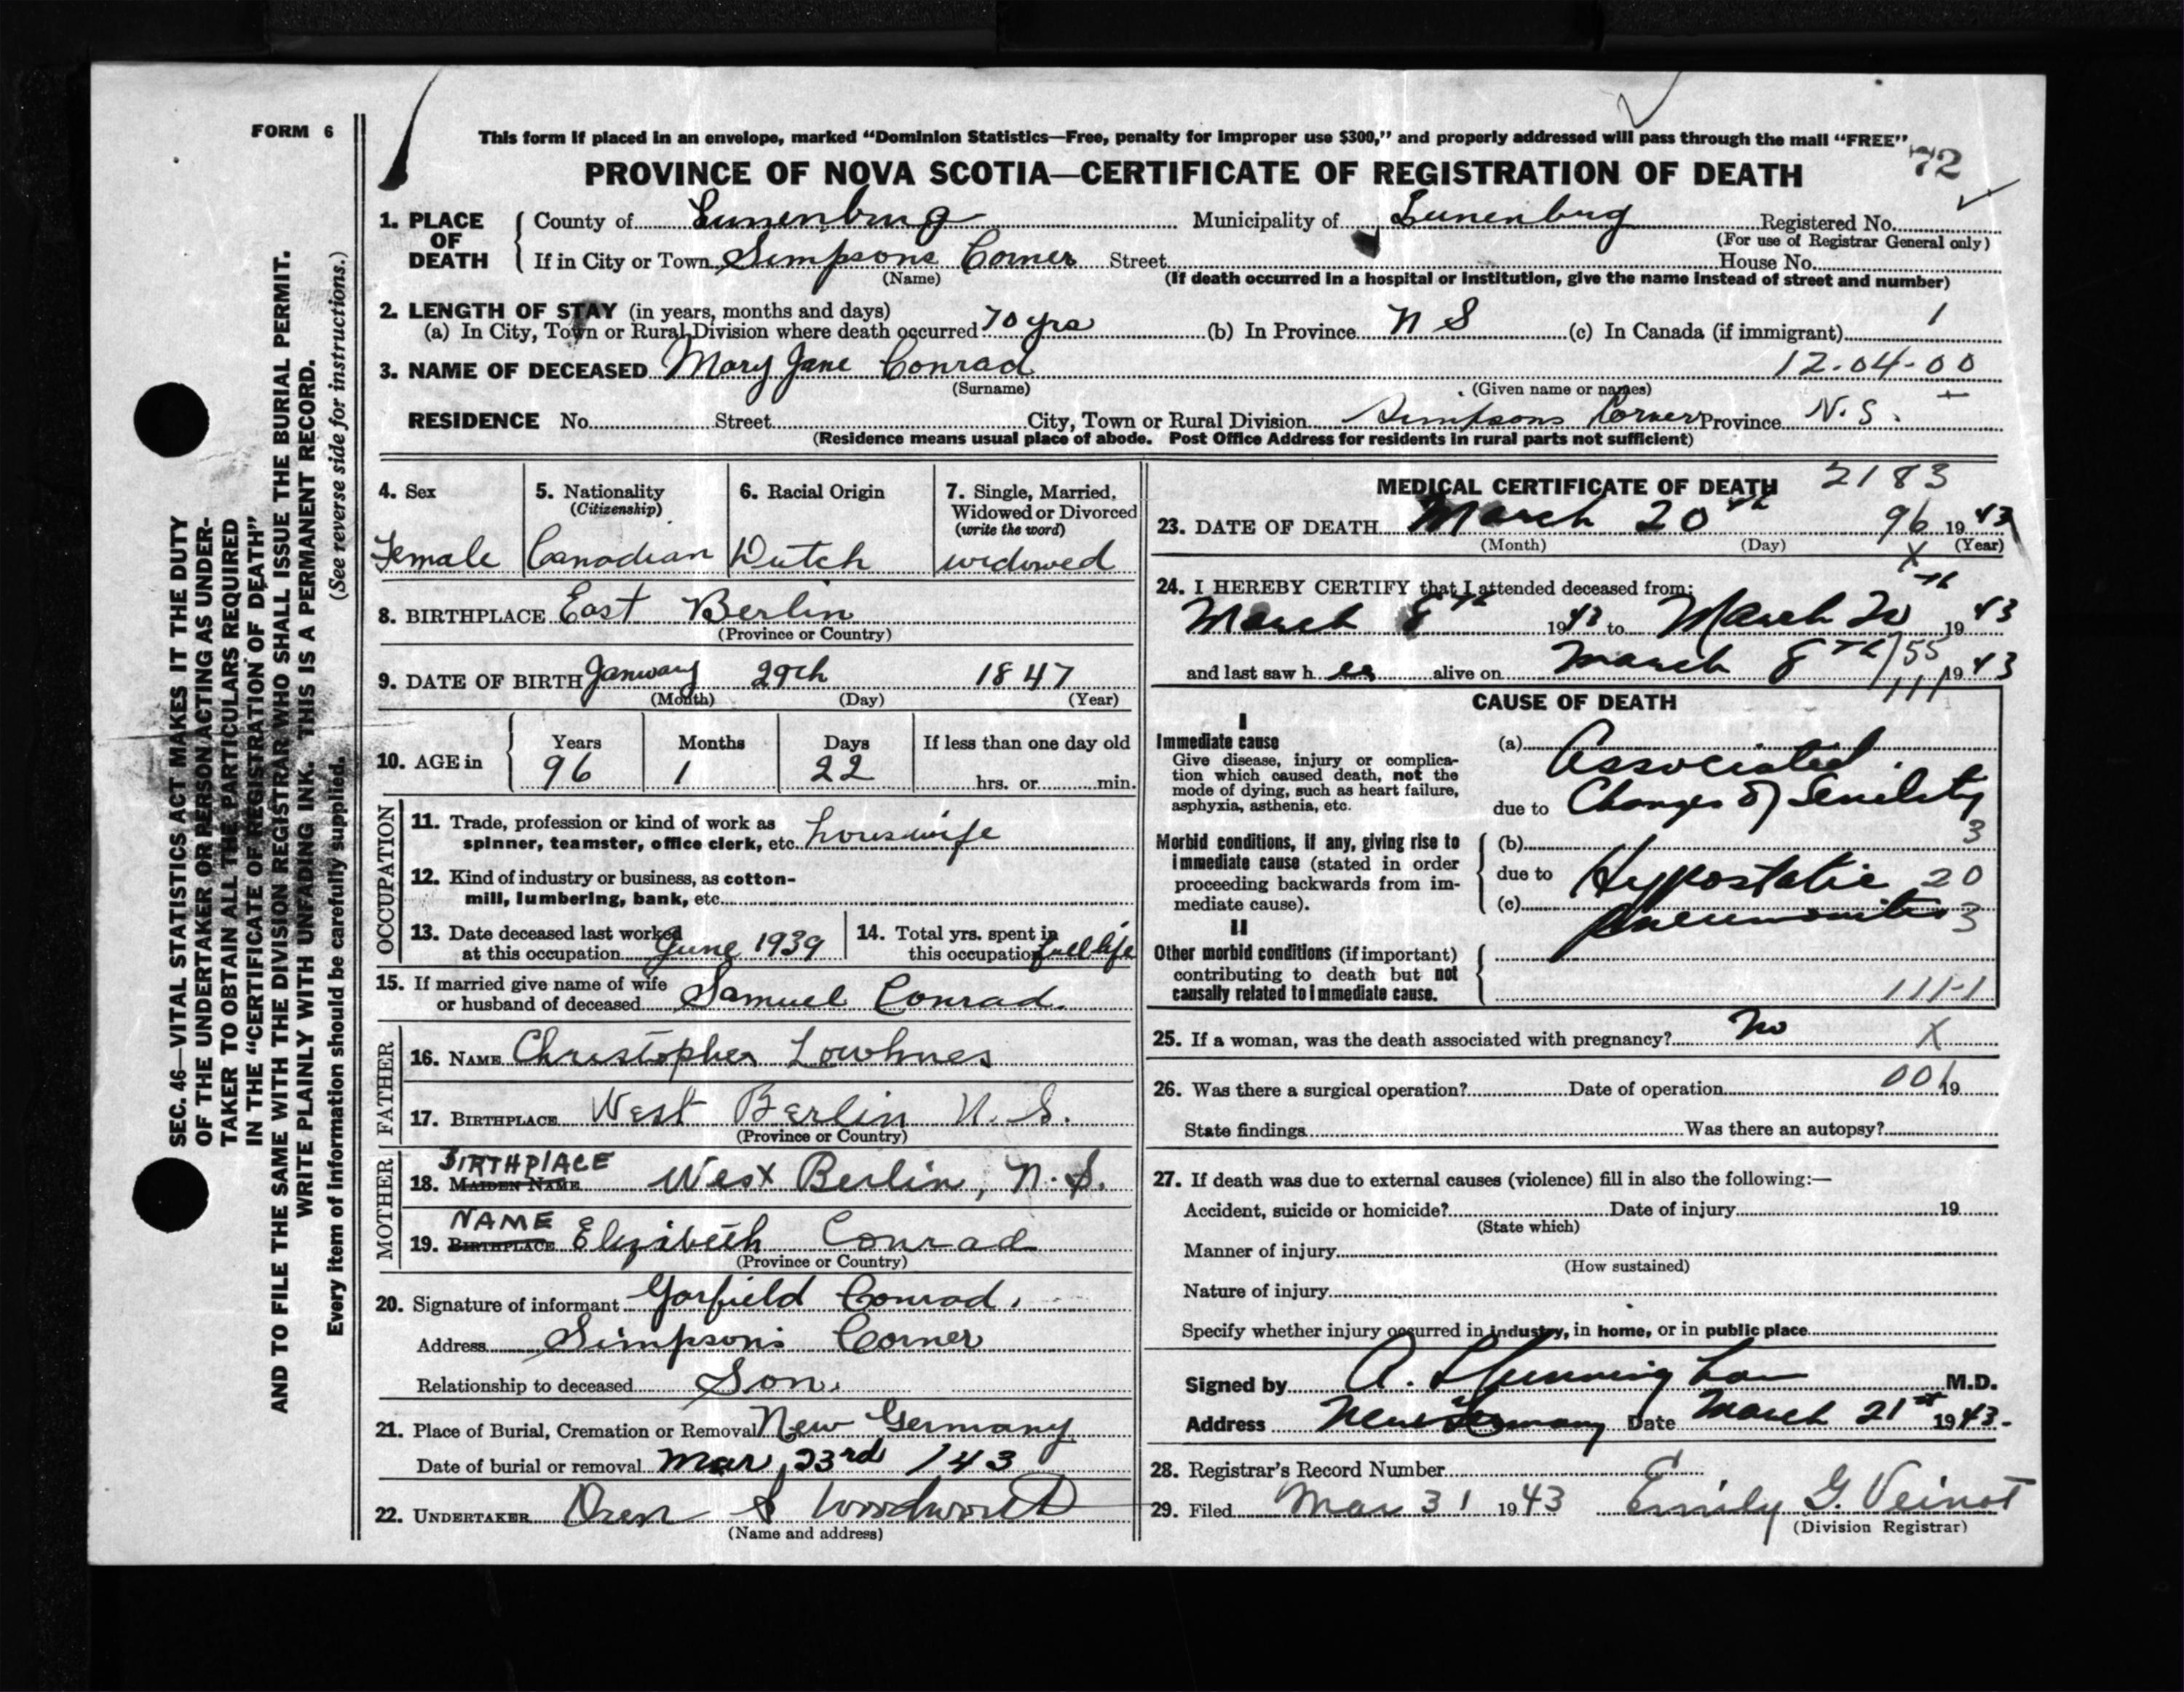 FORM 6
This form if placed in an envelope, marked “Dominion Statistics—Free, penalty for improper use $300,” and properly addressed will pass through the mail “FREE”
72
PROVINCE OF NOVA SCOTIA—CERTIFICATE OF REGISTRATION OF DEATH
1. PLACE OF DEATH
County of Lunenburg Municipality of Lunenburg Registered No.
(For use of Registrar General only)
If in City or Town Simpsons Corner Street House No.
(Name) (If death occurred in a hospital or institution, give the name instead of street and number)
2. LENGTH OF STAY (in years, months and days)
(a) In City, Town or Rural Division where death occurred 70 yrs (b) In Province N S (c) In Canada (if immigrant) 1
3. NAME OF DECEASED Mary Jane Conrad 12-04-00
(Surname) (Given name or names)
RESIDENCE No. Street City, Town or Rural Division Simpsons Corner Province N.S.
(Residence means usual place of abode. Post Office Address for residents in rural parts not sufficient)
4. Sex
Female
5. Nationality
(Citizenship)
Canadian
6. Racial Origin
Dutch
7. Single, Married, Widowed or Divorced
(write the word)
widowed
8. BIRTHPLACE East Berlin
(Province or Country)
9. DATE OF BIRTH January 29th 1847
(Month) (Day) (Year)
10. AGE in
Years Months Days If less than one day old
96 1 22 hrs. or min.
OCCUPATION
11. Trade, profession or kind of work as
spinner, teamster, office clerk, etc. houswife
12. Kind of industry or business, as cotton-
mill, lumbering, bank, etc.
13. Date deceased last worked
at this occupation June 1939
14. Total yrs. spent in
this occupation full life
15. If married give name of wife
or husband of deceased Samuel Conrad.
FATHER
16. NAME Christopher Lowhnes
17. BIRTHPLACE West Berlin N.S.
(Province or Country)
MOTHER
BIRTHPLACE
18. MAIDEN NAME West Berlin, N.S.
NAME
19. BIRTHPLACE Elizibeth Conrad
(Province or Country)
20. Signature of informant Garfield Conrad.
Address Simpsons Corner
Relationship to deceased Son.
21. Place of Burial, Cremation or Removal New Germany
Date of burial or removal Mar 23rd /43
22. UNDERTAKER Oren S Woodworth
(Name and address)
MEDICAL CERTIFICATE OF DEATH 2183
23. DATE OF DEATH March 20th 96 1943
(Month) (Day) X (Year)
24. I HEREBY CERTIFY that I attended deceased from:
March 8th 1943 to March 20th 1943
and last saw her alive on March 8th 155 1943
111
CAUSE OF DEATH
I
Immediate cause
Give disease, injury or complica-
tion which caused death, not the
mode of dying, such as heart failure,
asphyxia, asthenia, etc.
(a) Associated
due to Changes of Senility
Morbid conditions, if any, giving rise to
immediate cause (stated in order
proceeding backwards from im-
mediate cause).
(b) 3
due to Hypostatic 20
(c) pneumonitis 3
II
Other morbid conditions (if important)
contributing to death but not
causally related to immediate cause.
1111
25. If a woman, was the death associated with pregnancy? No X
26. Was there a surgical operation? Date of operation 001 19
State findings Was there an autopsy?
27. If death was due to external causes (violence) fill in also the following:—
Accident, suicide or homicide? Date of injury 19
(State which)
Manner of injury
(How sustained)
Nature of injury
Specify whether injury occurred in industry, in home, or in public place
Signed by A. M.D.
Address New Germany Date March 21st 1943.
28. Registrar's Record Number
29. Filed Mar 31 1943 Emily G. Veinot
(Division Registrar)
SEC. 46—VITAL STATISTICS ACT MAKES IT THE DUTY
OF THE UNDERTAKER OR PERSON ACTING AS UNDER-
TAKER TO OBTAIN ALL THE PARTICULARS REQUIRED
IN THE “CERTIFICATE OF REGISTRATION OF DEATH”
AND TO FILE THE SAME WITH THE DIVISION REGISTRAR WHO SHALL ISSUE THE BURIAL PERMIT.
WRITE PLAINLY WITH UNFADING INK. THIS IS A PERMANENT RECORD.
Every item of information should be carefully supplied. (See reverse side for instructions.)